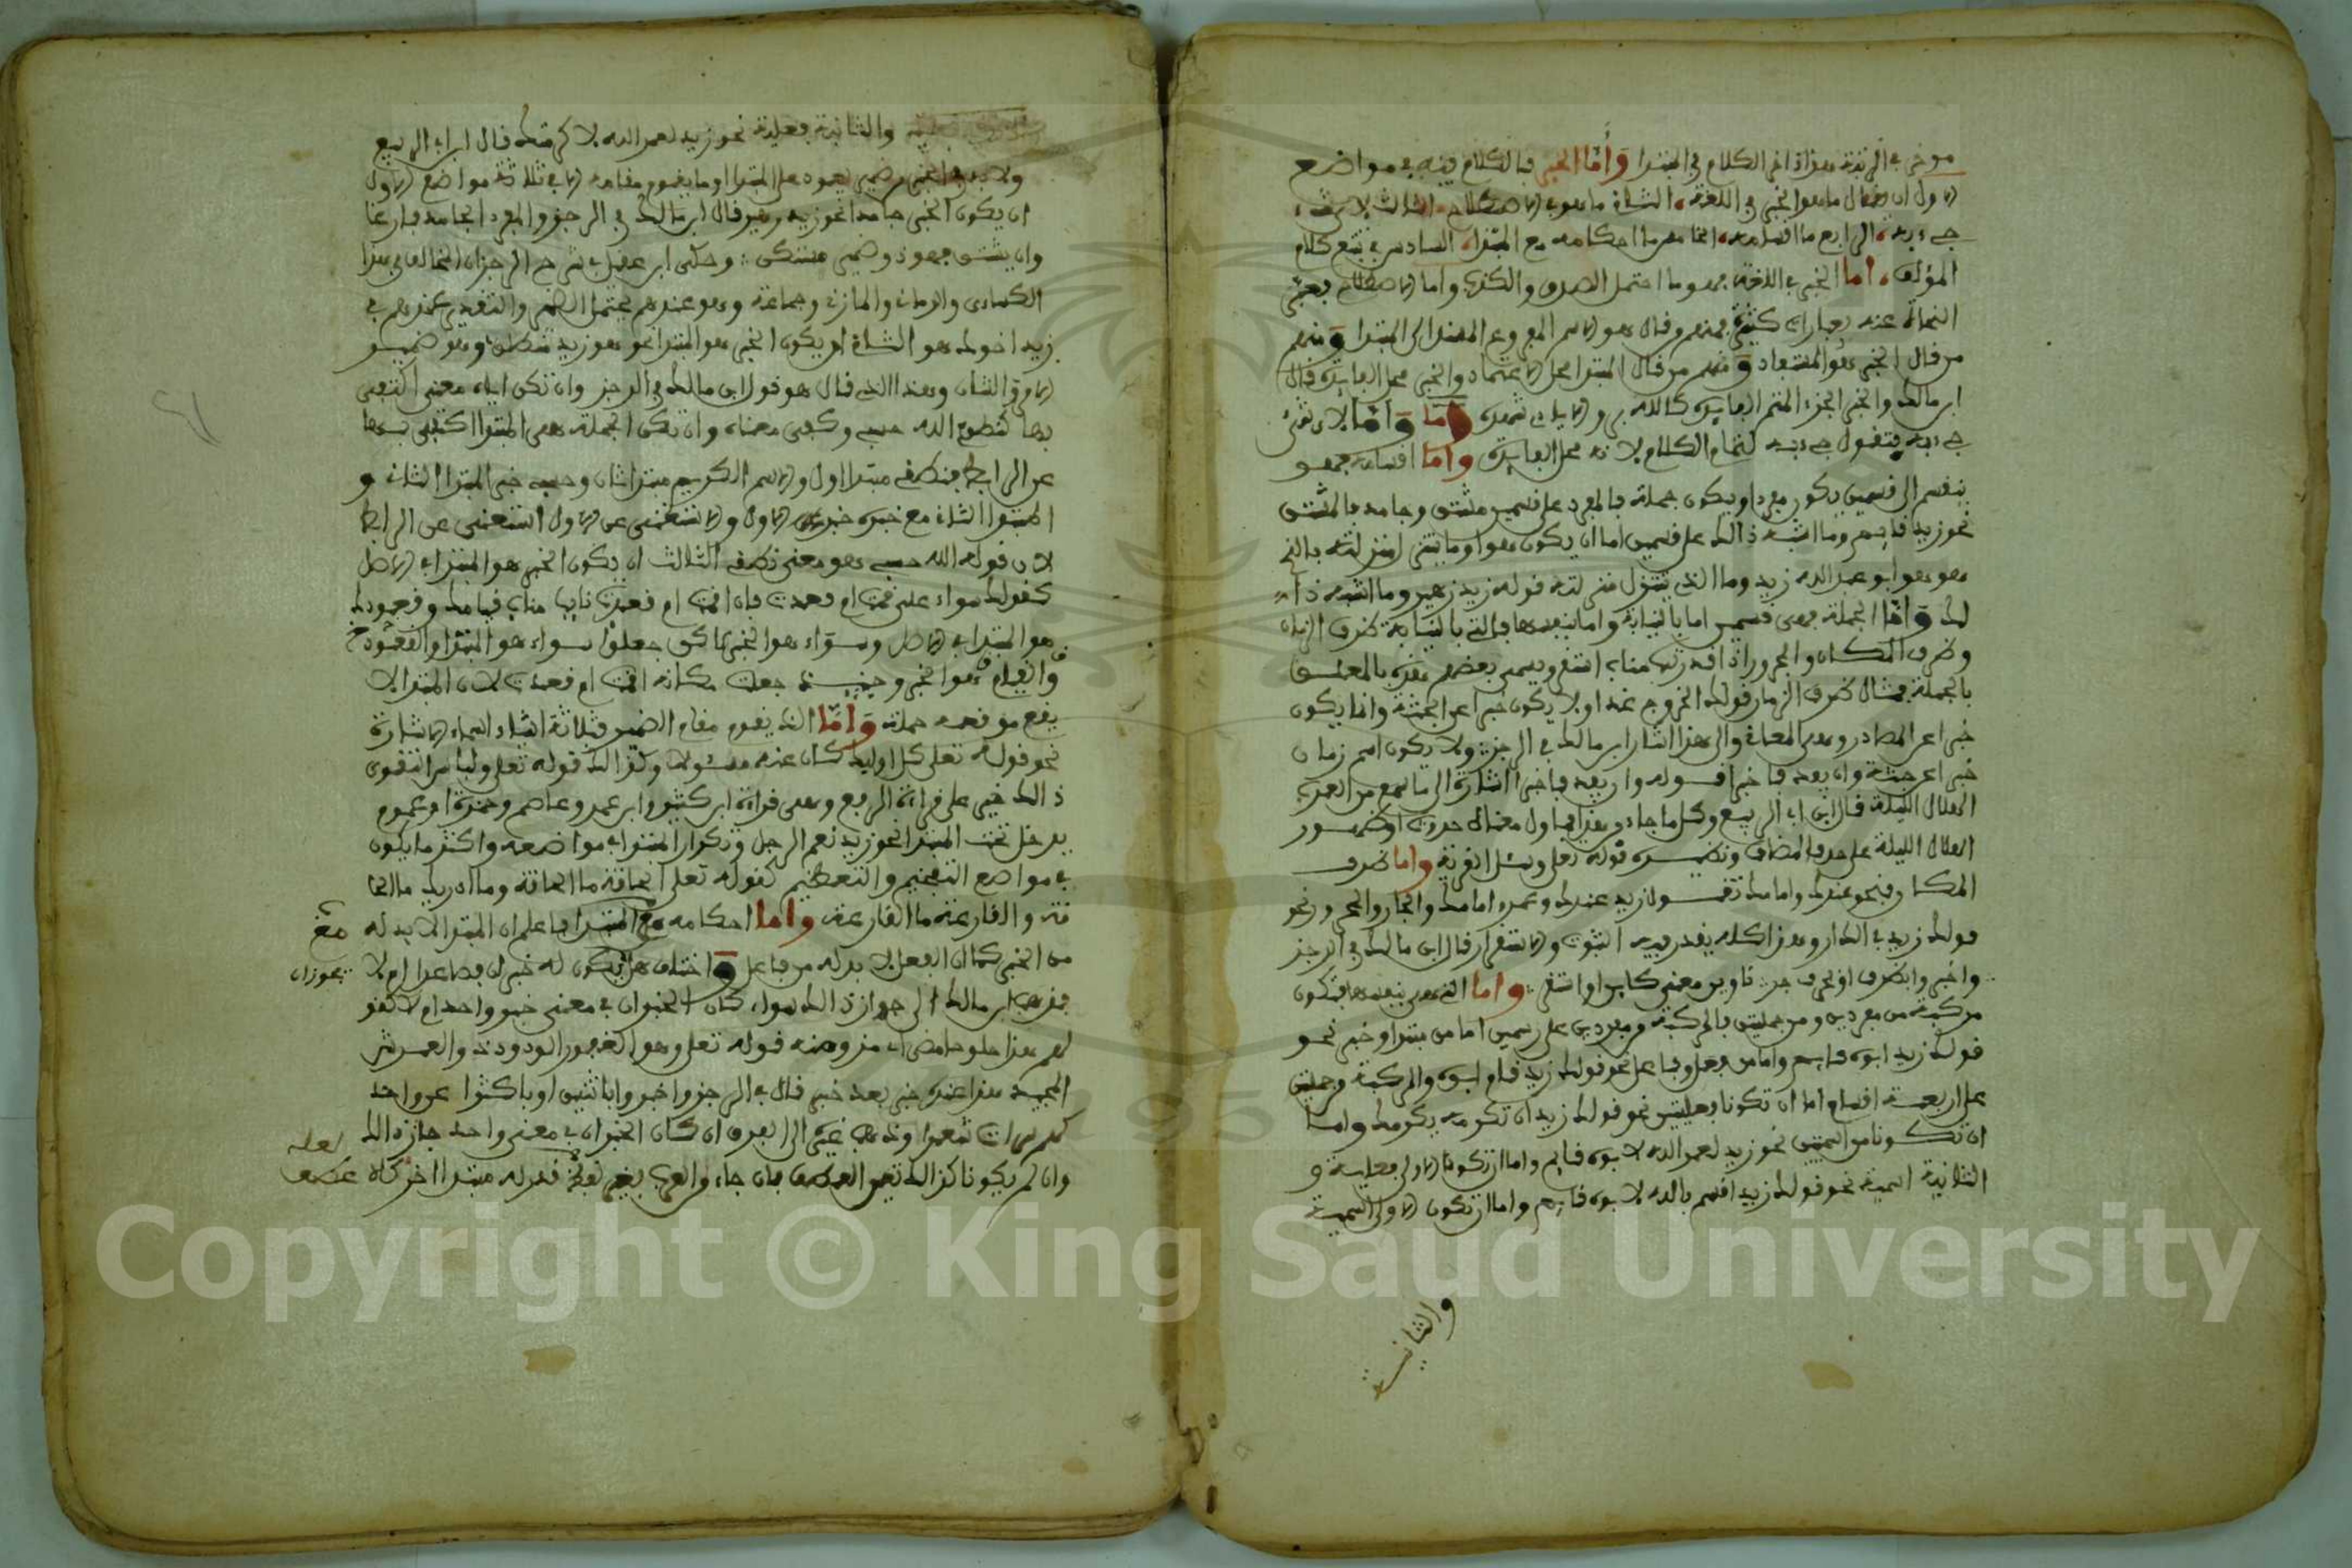 موخر في الرتبة هذا اخر الكلام في المبتدا وأما الخبر فالكلام فيه في مواضع
الاول ان يقال ما هو الخبر في اللغة الثاني ما هو في الاصطلاح الثالث لاي شيء
جيء به الرابع ما اقسامه الخامس ما احكامه مع المبتدا السادس في تتبع كلام
المؤلف اما الخبر في اللغة فهو ما احتمل الصدق والكذب واما في الاصطلاح فعبر
النحاة عنه بعبارات كثيرة فمنهم من قال هو الاسم المرفوع المسند الى المبتدا ومنهم
من قال الخبر هو المستفاد ومنهم من قال المبتدا محل الاعتماد والخبر محل الفايدة قال
ابن مالك والخبر الجزء المتم الفايدة كالله بر والايادي شاهدة واما لاي شيء
جيء به فتقول جيء به لتمام الكلام لانه محل الفايدة واما اقسامه فهو
ينقسم الى قسمين يكون مفردا ويكون جملة فالمفرد على قسمين مشتق وجامد فالمشتق
نحو زيد قايم وما اشبه ذالك على قسمين اما ان يكون هو او ما يتنزل منزلته فالذي
هو هو ابو عبد الله زيد وما الذي يتنزل منزلته قوله زيد زهير وما اشبه ذا
لك وأما الجملة فهي قسمين اما بالنيابة واما بنفسها فالتي بالنيابة ظرف الزمان
وظرف المكان والمجرور اذا قدرت منابه استقر ويسمى بعضهم
بالجملة فمثال ظرف الزمان قولك الخروج غدا ولا يكون خبرا عن الجثة وانما يكون
خبرا عن المصادر وهي المعاني والى هذا اشار ابن مالك في الرجز ولا يكون اسم زمان
خبرا عن جثة وان يفد فاخبرا قوله وان يفد فاخبرا اشارة الى ما سمع من العرب
الهلال الليلة قال ابن ابي الربيع وكل ما جاء من هذا فيأول معناه حدوث او ظهور
الهلال الليلة على حذف المضاف ونظيره قوله تعلى وسئل القرية واما ظرف
المكان فنحو عندك وامامك تقول زيد عندك وعمرو امامك والجار والمجرور نحو
قولك زيد في الدار وهذا كله يقدر فيه الثبوت والاستقرار قال ابن مالك في الرجز
واخبروا بظرف او بحرف جر ناوين معنى كاين او استقر واما التي هي بنفسها فتكون
مركبة من مفردين ومن جملتين فالمركبة من مفردين على رسمين اما من مبتدا وخبر نحو
قولك زيد ابوه قايم واما من فعل وفاعل نحو قولك زيد قام ابوه والمركبة من جملتين
على اربعة اقسام اما ان تكونا فعليتين نحو قولك زيد ان تكرمه يكرمك واما
ان تكونا من اسمين نحو زيد لعمر الله لابوه قايم واما ان تكون الاولى فعلية و
الثانية اسمية نحو قولك زيد اقسم بالله لابوه قايم واما ان تكون الاولى اسمية
والثانية
والثانية فعلية نحو زيد لعمر الله لاكرمنك قال ابن ابي الربيع
ولا بد في الخبر من ضمير يعود على المبتدا او ما يقوم مقامه الا في ثلاثة مواضع الاول
ان يكون الخبر جامدا نحو زيد زهير قال ابن مالك في الرجز والمفرد الجامد فارغا
وان يشتق فهو ذو ضمير مستكن وحكى ابن عقيل في شرح الرجز ان المخالف في هذا
الكساءي والرماني والمازني وجماعة وهو عندهم يحتمل الضمير والتقدير عندهم في
زيد اخوك هو الثاني ان يكون الخبر هو المبتدا نحو هو زيد منطلق وهو ضمير
الامر والشان وهذا الذي قال هو قول ابن مالك في الرجز وان تكن اياه معنى اكتفى
بها كنطقي الله حسبي وكفى معناه وان تكن الجملة هي المبتدا اكتفى بها
عن الرابط فنطقي مبتدا اول والاسم الكريم مبتدا ثان وحسبي خبر المبتدا الثاني و
المبتدا الثاني مع خبره خبر الاول والاستغنى عن الاول استغنى عن الرابط
لان قوله الله حسبي هو معنى نطقي الثالث ان يكون الخبر هو المبتدا في الاصل
كقولك سواء علي قمت ام قعدت فان اقمت ام قعدت نايبا مناب قيامك وقعودك
هو المبتدا في الاصل وسواء هو الخبر لكن جعلوا سواء هو المبتدا والقعود
والقيام هو الخبر وحينيذ جعلت مكانه اقمت ام قعدت لان المبتدا لا
يقع موقعه جملة وأما الذي يقوم مقام الضمير فثلاثة اشياء اسماء الاشارة
نحو قوله تعلى كل اوليك كان عنه مسئولا وكذالك قوله تعلى ولباس التقوى
ذالك خير على قراءة الرفع وهي قراءة ابن كثير وابي عمرو وعاصم وحمزة او عموم
يدخل تحت المبتدا نحو زيد نعم الرجل وتكرار المبتدا في مواضعه واكثر ما يكون
في مواضع التفخيم والتعظيم كقوله تعلى الحاقة ما الحاقة وما ادريك ما الحا
قة والقارعة ما القارعة واما احكامه مع المبتدا فاعلم ان المبتدا لا بد له
من الخبر كما ان الفعل لا بد له من فاعل واختلف هل يكون له خبران فصاعدا ام لا
يجوز ان
فذهب ابن مالك الى جواز ذالك سواء كان الخبران في معنى خبر واحد ام لا كقو
لهم هذا حلو حامض اي مز ومنه قوله تعلى وهو الغفور الودود ذو العرش
المجيد هذا عنده خبر بعد خبر قال في الرجز واخبروا باثنين او باكثرا عن واحد
كهم سراة شعرا وذهب غيره الى العرف ان كان الخبران في معنى واحد جاز ذالك
وان لم يكونا كذالك تعين العطف فان جاء من العرب بغير قدر له مبتدا اخر
لعله
عطف